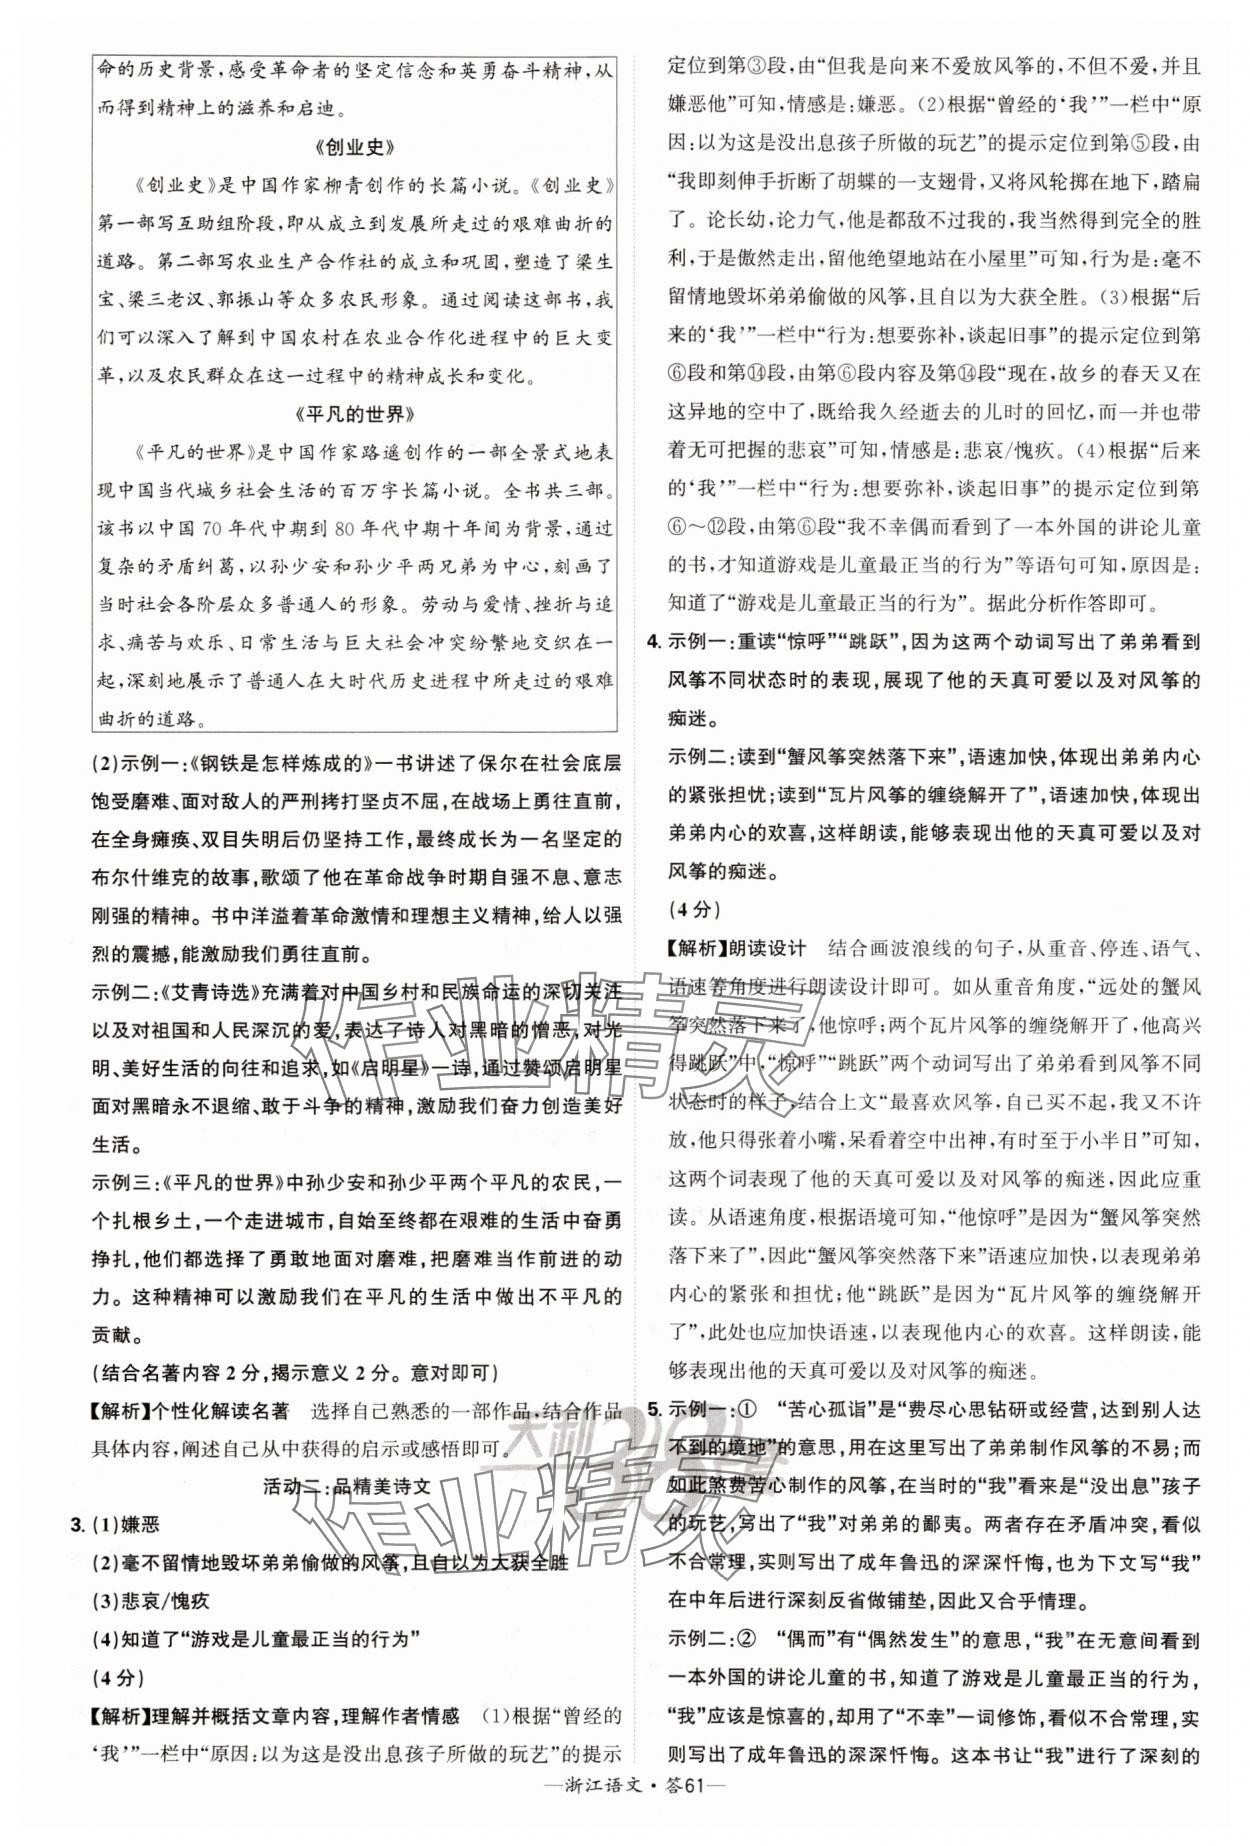 命的历史背景，感受革命者的坚定信念和英勇奋斗精神，从
而得到精神上的滋养和启迪。
《创业史》
《创业史》是中国作家柳青创作的长篇小说。《创业史》
第一部写互助组阶段，即从成立到发展所走过的艰难曲折的
道路。第二部写农业生产合作社的成立和巩固，塑造了梁生
宝、梁三老汉、郭振山等众多农民形象。通过阅读这部书，我
们可以深入了解到中国农村在农业合作化进程中的巨大变
革，以及农民群众在这一过程中的精神成长和变化。
《平凡的世界》
《平凡的世界》是中国作家路遥创作的一部全景式地表
现中国当代城乡社会生活的百万字长篇小说。全书共三部。
该书以中国 70 年代中期到 80 年代中期十年间为背景，通过
复杂的矛盾纠葛，以孙少安和孙少平两兄弟为中心，刻画了
当时社会各阶层众多普通人的形象。劳动与爱情、挫折与追
求、痛苦与欢乐、日常生活与巨大社会冲突纷繁地交织在一
起，深刻地展示了普通人在大时代历史进程中所走过的艰难
曲折的道路。
(2)示例一：《钢铁是怎样炼成的》一书讲述了保尔在社会底层
饱受磨难、面对敌人的严刑拷打坚贞不屈，在战场上勇往直前，
在全身瘫痪、双目失明后仍坚持工作，最终成长为一名坚定的
布尔什维克的故事，歌颂了他在革命战争时期自强不息、意志
刚强的精神。书中洋溢着革命激情和理想主义精神，给人以强
烈的震撼，能激励我们勇往直前。
示例二：《艾青诗选》充满着对中国乡村和民族命运的深切关注
以及对祖国和人民深沉的爱，表达了诗人对黑暗的憎恶，对光
明、美好生活的向往和追求，如《启明星》一诗，通过赞颂启明星
面对黑暗永不退缩、敢于斗争的精神，激励我们奋力创造美好
生活。
示例三：《平凡的世界》中孙少安和孙少平两个平凡的农民，一
个扎根乡土，一个走进城市，自始至终都在艰难的生活中奋勇
挣扎，他们都选择了勇敢地面对磨难，把磨难当作前进的动
力。这种精神可以激励我们在平凡的生活中做出不平凡的
贡献。
(结合名著内容 2 分，揭示意义 2 分。意对即可)
【解析】个性化解读名著　选择自己熟悉的一部作品，结合作品
具体内容，阐述自己从中获得的启示或感悟即可。
活动二：品精美诗文
3. (1)嫌恶
(2)毫不留情地毁坏弟弟偷做的风筝，且自以为大获全胜
(3)悲哀/愧疚
(4)知道了“游戏是儿童最正当的行为”
(4 分)
【解析】理解并概括文章内容，理解作者情感　(1)根据“曾经的
‘我’”一栏中“原因：以为这是没出息孩子所做的玩艺”的提示
定位到第③段，由“但我是向来不爱放风筝的，不但不爱，并且
嫌恶他”可知，情感是：嫌恶。(2)根据“曾经的‘我’”一栏中“原
因：以为这是没出息孩子所做的玩艺”的提示定位到第⑤段，由
“我即刻伸手折断了胡蝶的一支翅骨，又将风轮掷在地下，踏扁
了。论长幼，论力气，他是都敌不过我的，我当然得到完全的胜
利，于是傲然走出，留他绝望地站在小屋里”可知，行为是：毫不
留情地毁坏弟弟偷做的风筝，且自以为大获全胜。(3)根据“后
来的‘我’”一栏中“行为：想要弥补，谈起旧事”的提示定位到第
⑥段和第⑭段，由第⑥段内容及第⑭段“现在，故乡的春天又在
这异地的空中了，既给我久经逝去的儿时的回忆，而一并也带
着无可把握的悲哀”可知，情感是：悲哀/愧疚。(4)根据“后来
的‘我’”一栏中“行为：想要弥补，谈起旧事”的提示定位到第
⑥～⑫段，由第⑥段“我不幸偶而看到了一本外国的讲论儿童
的书，才知道游戏是儿童最正当的行为”等语句可知，原因是：
知道了“游戏是儿童最正当的行为”。据此分析作答即可。
4. 示例一：重读“惊呼”“跳跃”，因为这两个动词写出了弟弟看到
风筝不同状态时的表现，展现了他的天真可爱以及对风筝的
痴迷。
示例二：读到“蟹风筝突然落下来”，语速加快，体现出弟弟内心
的紧张担忧；读到“瓦片风筝的缠绕解开了”，语速加快，体现出
弟弟内心的欢喜，这样朗读，能够表现出他的天真可爱以及对
风筝的痴迷。
(4 分)
【解析】朗读设计　结合画波浪线的句子，从重音、停连、语气、
语速等角度进行朗读设计即可。如从重音角度，“远处的蟹风
筝突然落下来了，他惊呼；两个瓦片风筝的缠绕解开了，他高兴
得跳跃”中，“惊呼”“跳跃”两个动词写出了弟弟看到风筝不同
状态时的样子，结合上文“最喜欢风筝，自己买不起，我又不许
放，他只得张着小嘴，呆看着空中出神，有时至于小半日”可知，
这两个词表现了他的天真可爱以及对风筝的痴迷，因此应重
读。从语速角度，根据语境可知，“他惊呼”是因为“蟹风筝突然
落下来了”，因此“蟹风筝突然落下来”语速应加快，以表现弟弟
内心的紧张和担忧；他“跳跃”是因为“瓦片风筝的缠绕解开
了”，此处也应加快语速，以表现他内心的欢喜。这样朗读，能
够表现出他的天真可爱以及对风筝的痴迷。
5. 示例一：①　“苦心孤诣”是“费尽心思钻研或经营，达到别人达
不到的境地”的意思，用在这里写出了弟弟制作风筝的不易；而
如此煞费苦心制作的风筝，在当时的“我”看来是“没出息”孩子
的玩艺，写出了“我”对弟弟的鄙夷。两者存在矛盾冲突，看似
不合常理，实则写出了成年鲁迅的深深忏悔，也为下文写“我”
在中年后进行深刻反省做铺垫，因此又合乎情理。
示例二：②　“偶而”有“偶然发生”的意思，“我”在无意间看到
一本外国的讲论儿童的书，知道了游戏是儿童最正当的行为，
“我”应该是惊喜的，却用了“不幸”一词修饰，看似不合常理，实
则写出了成年鲁迅的深深忏悔。这本书让“我”进行了深刻的
—浙江语文·答61—
作业精灵
天利38套
作业精灵